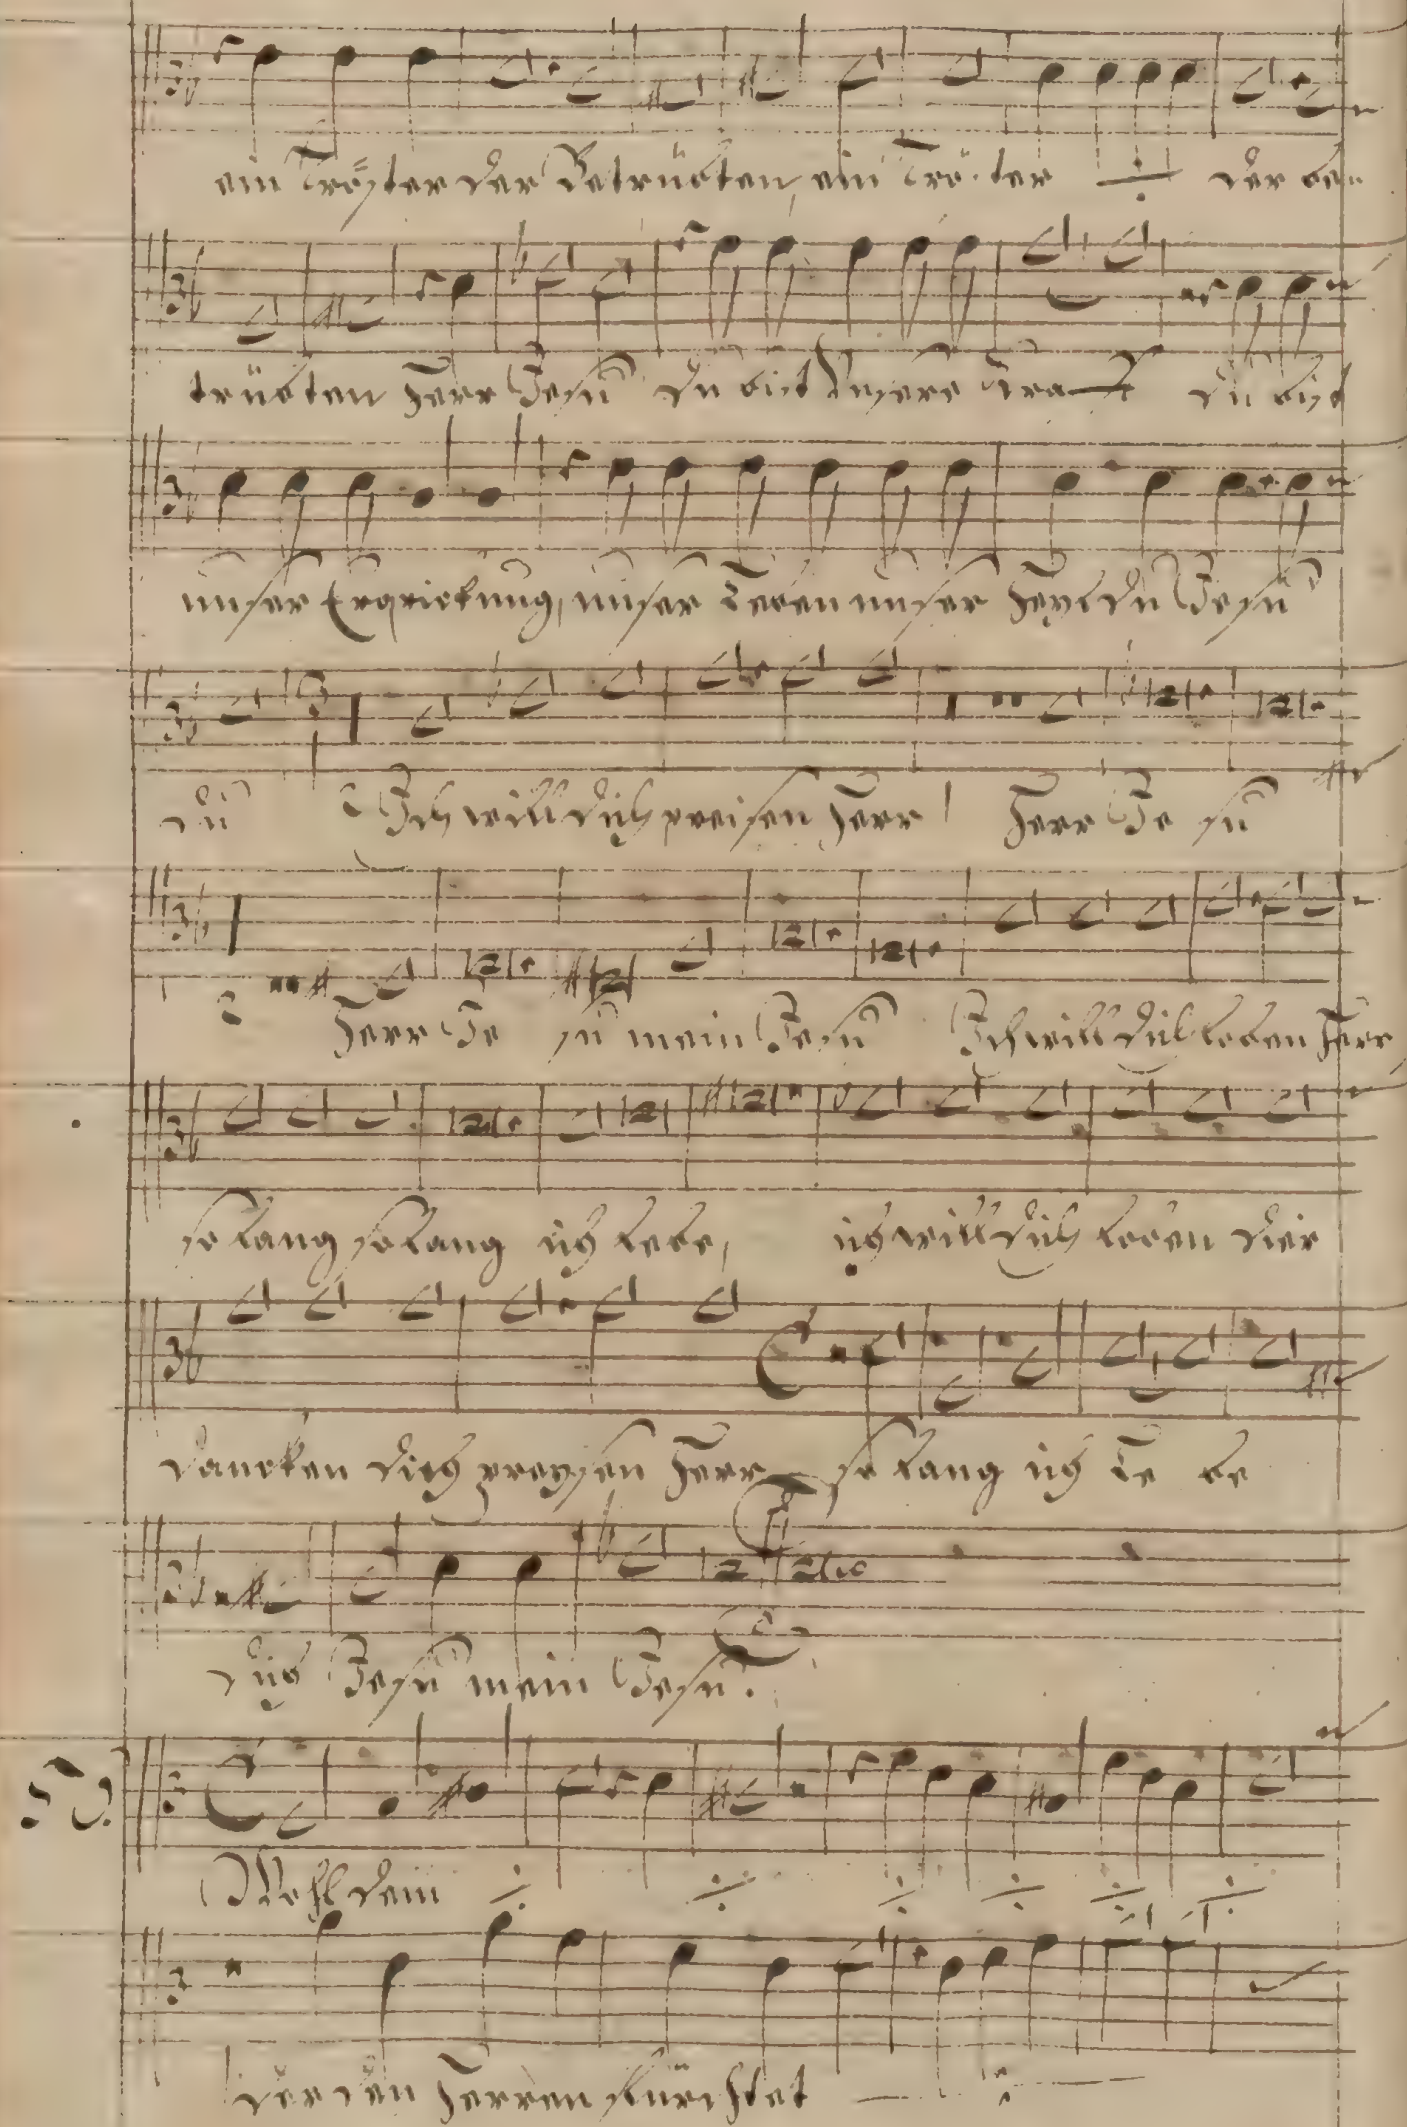 ein Tröster der Betrübten, ein Tröster ÷ der be-
trübten Herr Jesu du bist unsere Krafft du bist
unser Erqwickung, unser Leben unser Heyl du Jesu
du Ich will dich preisen Herr Herr Je su
Herr Je su mein Jesu Ich will dich loben Herr
so lang so lang ich lebe, ich will dich loben dier
dancken dich preysen Herr so lang ich Le be
dich Jesu mein Jesu.
Wohl dem ÷ ÷ ÷ ÷ ÷ ÷
der den Herren fürchtet ÷